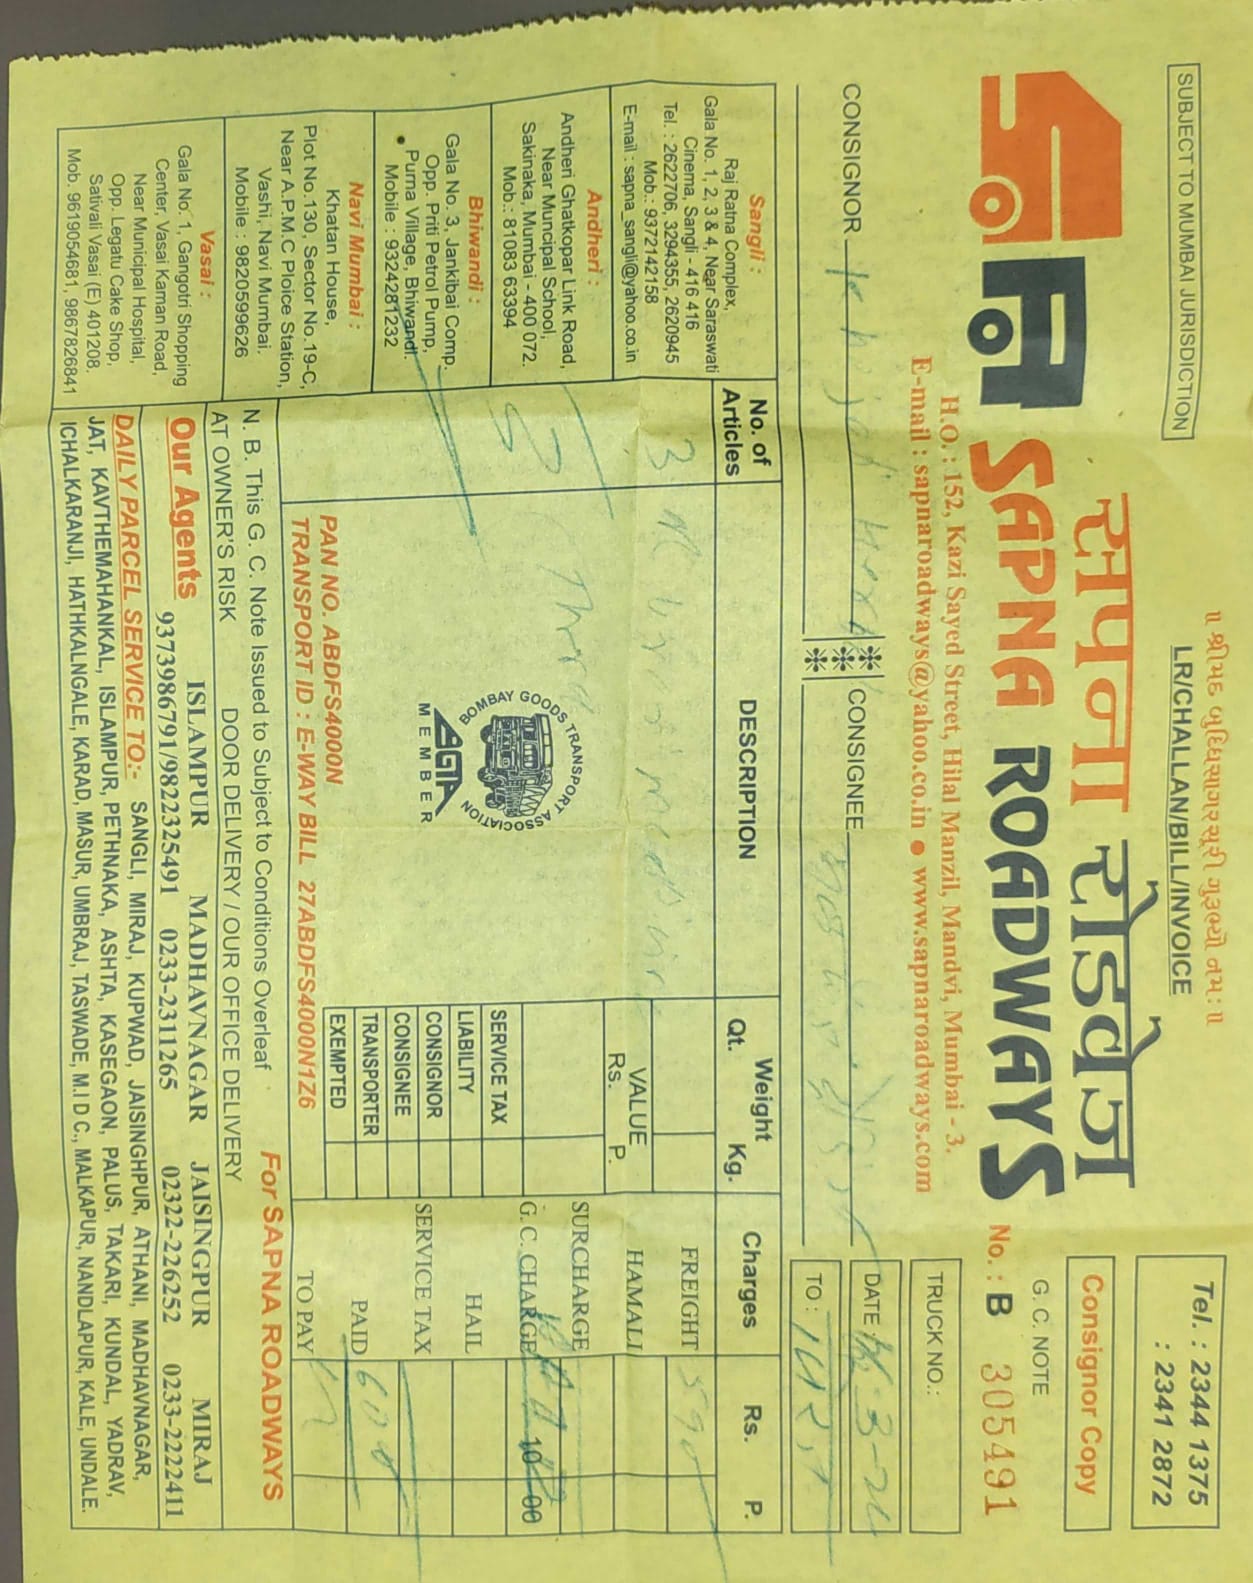 ॥ શ્રીમદ્ બુદ્ધિસાગરસૂરી ગુરૂભ્યો નમઃ ॥
SUBJECT TO MUMBAI JURISDICTION
LR/CHALLAN/BILL/INVOICE
Tel. : 2344 1375
: 2341 2872
सपना रोडवेज
SAPNA ROADWAYS
H.O. : 152, Kazi Sayed Street, Hilal Manzil, Mandvi, Mumbai - 3.
E-mail : sapnaroadways@yahoo.co.in ● www.sapnaroadways.com
Consignor Copy
G. C. NOTE
No. : B 305491
TRUCK NO.:
CONSIGNOR
CONSIGNEE
DATE :
TO :
Sangli :
Raj Ratna Complex,
Gala No. 1, 2, 3 & 4, Near Saraswati
Cinema, Sangli - 416 416
Tel. : 2622706, 3294355, 2620945
Mob.: 9372142158
E-mail : sapna_sangli@yahoo.co.in
Andheri :
Andheri Ghatkopar Link Road,
Near Muncipal School,
Sakinaka, Mumbai - 400 072.
Mob.: 81083 63394
Bhiwandi :
Gala No. 3, Jankibai Comp.
Opp. Priti Petrol Pump,
Purna Village, Bhiwandi.
Mobile : 9324281232
Navi Mumbai :
Khatan House,
Plot No.130, Sector No.19-C,
Near A.P.M.C Ploice Station,
Vashi, Navi Mumbai.
Mobile : 9820599626
Vasai :
Gala No. 1, Gangotri Shopping
Center, Vasai Kaman Road,
Near Municipal Hospital,
Opp. Legatu Cake Shop,
Sativali Vasai (E) 401208.
Mob. 9619054681, 9867826841
No. of Articles
DESCRIPTION
Weight
Qt. Kg.
Charges
Rs. P.
3
VALUE
Rs. P.
SERVICE TAX
LIABILITY
CONSIGNOR
CONSIGNEE
TRANSPORTER
EXEMPTED
FREIGHT
HAMALI
SURCHARGE
G. C. CHARGE 10 00
HAIL
SERVICE TAX
PAID
TO PAY
BOMBAY GOODS TRANSPORT ASSOCIATION
BGTA
MEMBER
PAN NO. ABDFS4000N
TRANSPORT ID : E-WAY BILL 27ABDFS4000N1Z6
N. B. This G. C. Note Issued to Subject to Conditions Overleaf
AT OWNER'S RISK DOOR DELIVERY / OUR OFFICE DELIVERY
For SAPNA ROADWAYS
Our Agents
ISLAMPUR MADHAVNAGAR JAISINGPUR MIRAJ
9373986791/9822325491 0233-2311265 02322-226252 0233-2222411
DAILY PARCEL SERVICE TO:- SANGLI, MIRAJ, KUPWAD, JAISINGHPUR, ATHANI, MADHAVNAGAR,
JAT, KAVTHEMAHANKAL, ISLAMPUR, PETHNAKA, ASHTA, KASEGAON, PALUS, TAKARI, KUNDAL, YADRAV,
ICHALKARANJI, HATHKALNGALE, KARAD, MASUR, UMBRAJ, TASWADE, M.I D C., MALKAPUR, NANDLAPUR, KALE, UNDALE.